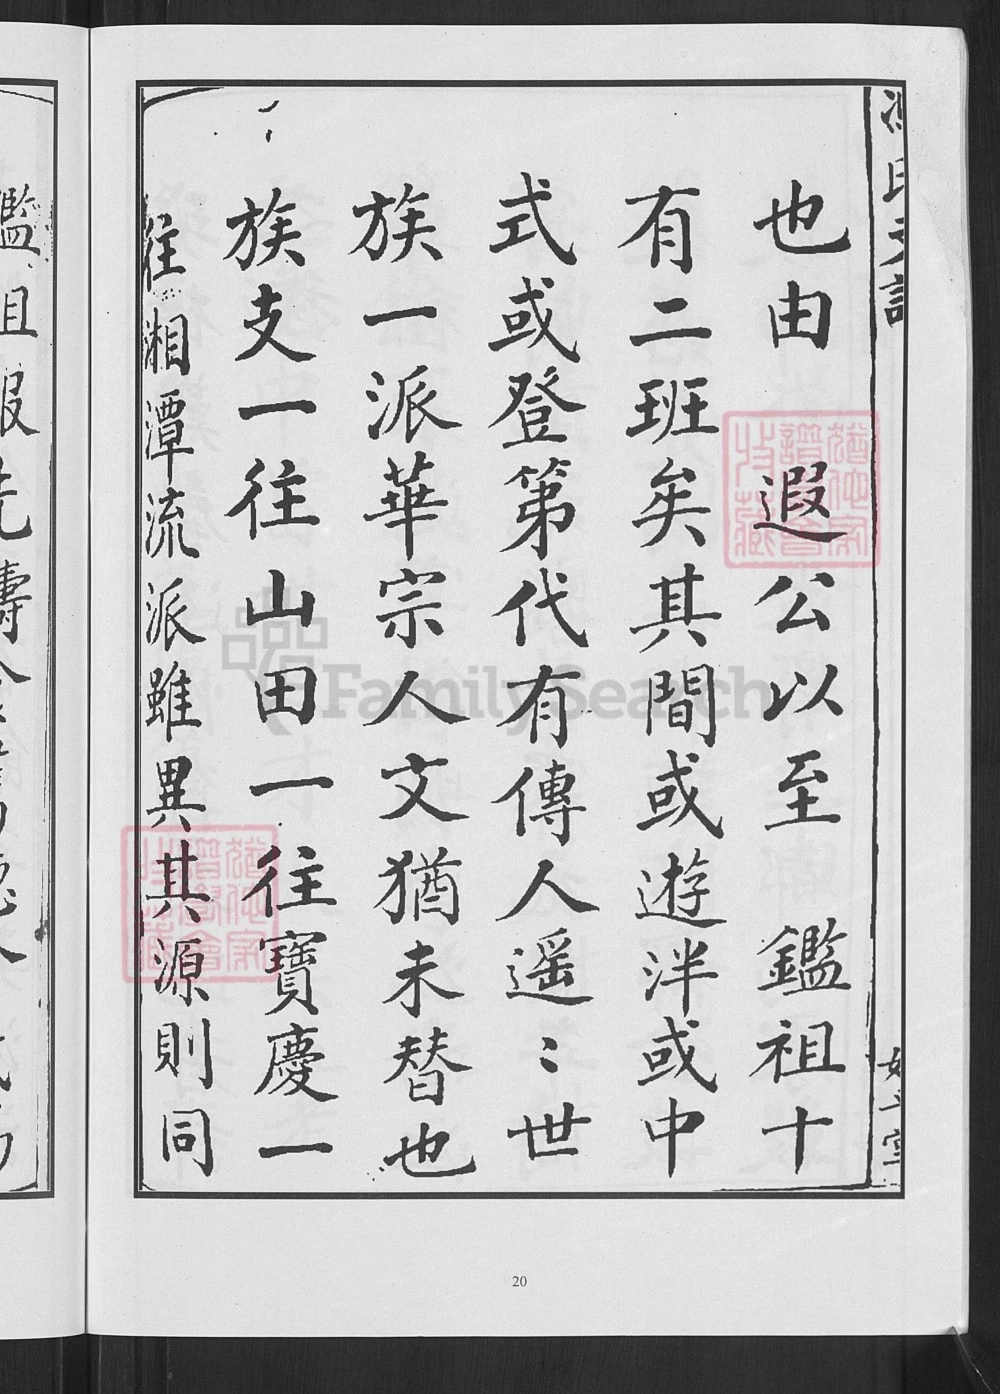 馮氏支譜
也由 遐公以至 鑑祖十
有二班矣其間或遊泮或中
式或登第代有傳人遥〻世
族一派華宗人文猶未替也
族支一往山田一往寶慶一
往湘潭流派雖異其源則同
20
FamilySearch